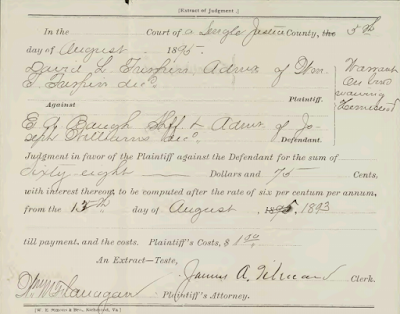 [Extract of Judgment.]
In the Court of a Single Justice County, the 5th
day of August 1895
David L. Admr of Wm.
E. dec'd. Plaintiff.
Against
E. A. Baugh Shff & Admr. of Jo-
seph Williams dec'd. Defendant.
Warrant
on
waiving
Homestead
Judgment in favor of the Plaintiff against the Defendant for the sum of
Sixty eight Dollars and 75 Cents,
with interest thereon, to be computed after the rate of six per centum per annum,
from the 15th day of August, 1895, 1893
till payment, and the costs. Plaintiff's Costs, $ 1.50
An Extract—Teste,
James A. Clerk.
Wm Flanagan Plaintiff's Attorney.